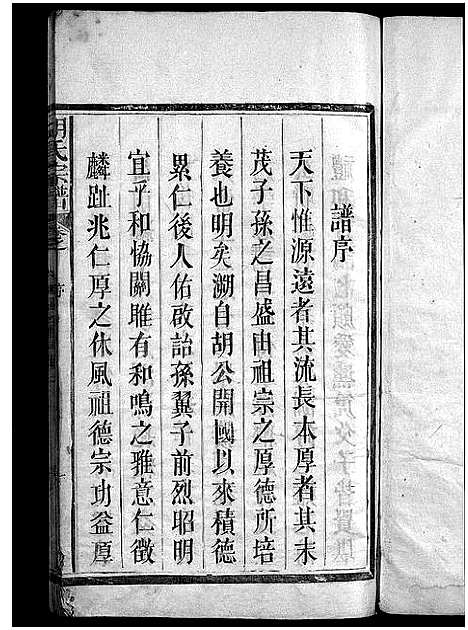 譜序
天下惟源遠者其流長本厚者其末
茂子孫之昌盛由祖宗之厚德所培
養也明矣溯自胡公開國以來積德
累仁後人佑啟詒孫翼子前烈昭明
宜乎和協關雎有和鳴之雅意仁徵
麟趾兆仁厚之休風祖德宗功益厚
胡氏宗譜